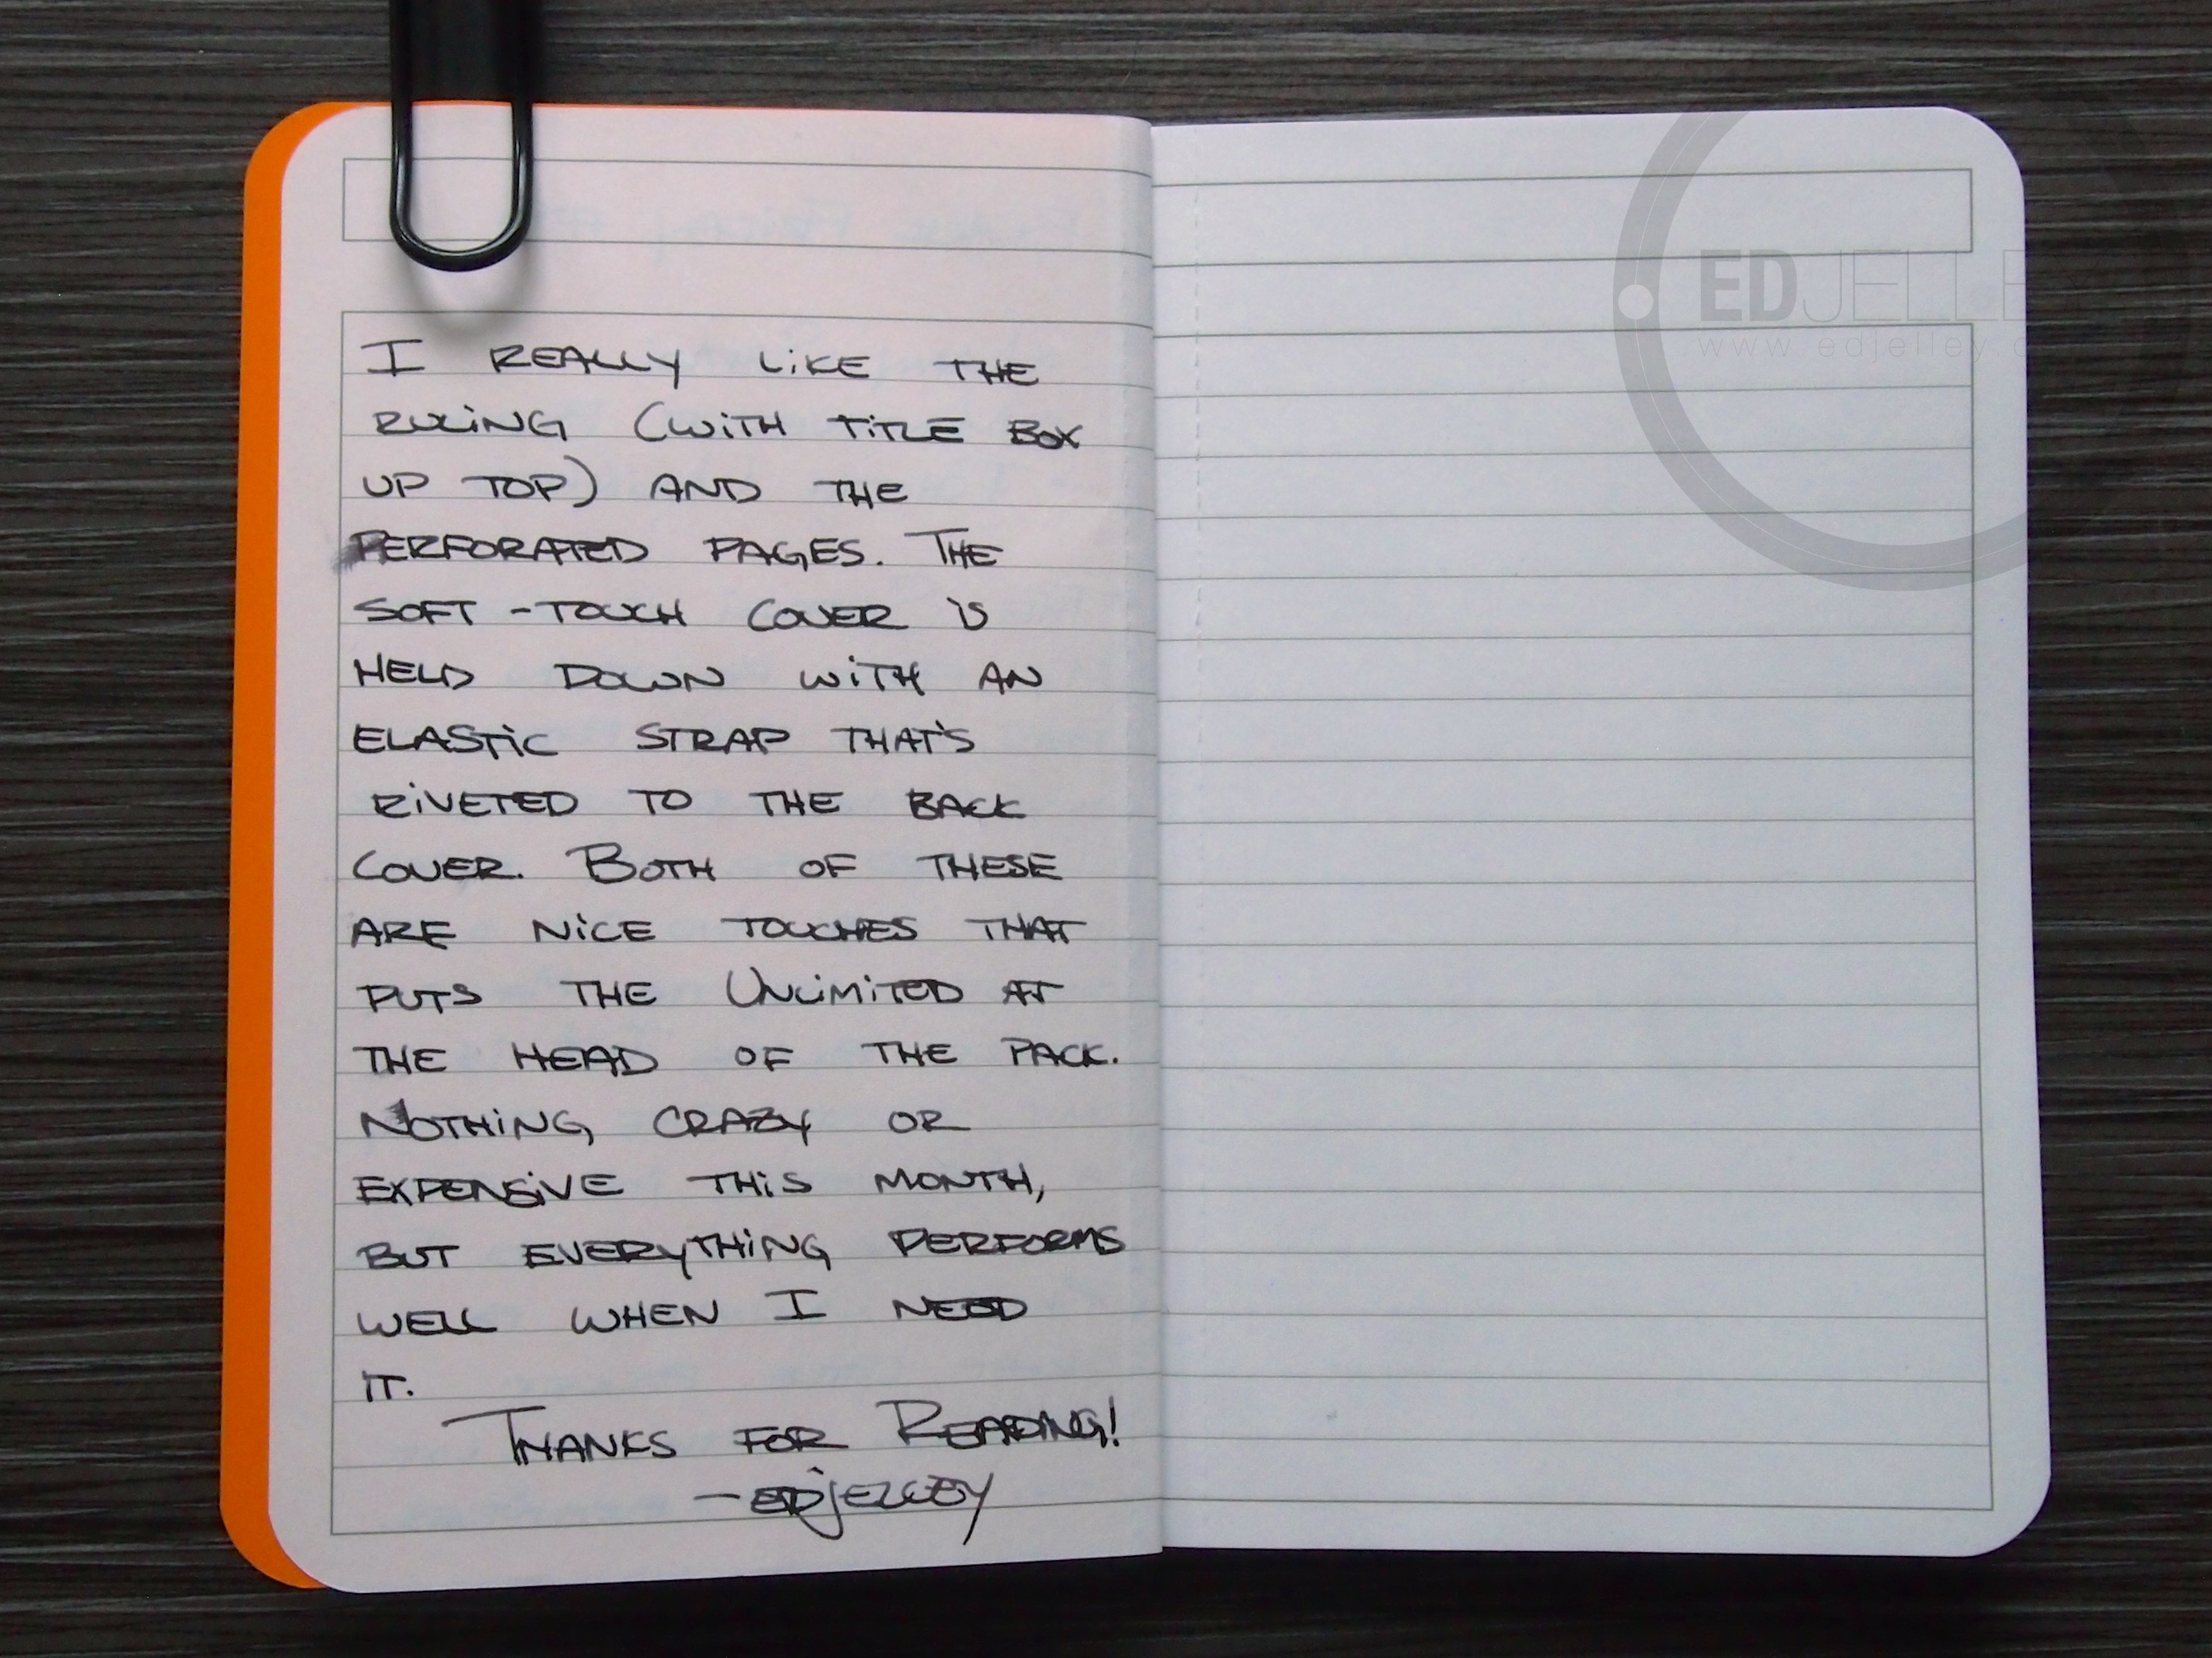 I REALLY LIKE THE
RULING (WITH TITLE BOX
UP TOP) AND THE
PERFORATED PAGES. THE
SOFT-TOUCH COVER IS
HELD DOWN WITH AN
ELASTIC STRAP THAT'S
RIVETED TO THE BACK
COVER. BOTH OF THESE
ARE NICE TOUCHES THAT
PUTS THE UNLIMITED AT
THE HEAD OF THE PACK.
NOTHING CRAZY OR
EXPENSIVE THIS MONTH,
BUT EVERYTHING PERFORMS
WELL WHEN I NEED
IT.
THANKS FOR READING!
-EDjELLEY
EDJELLE
www.edjelley.c